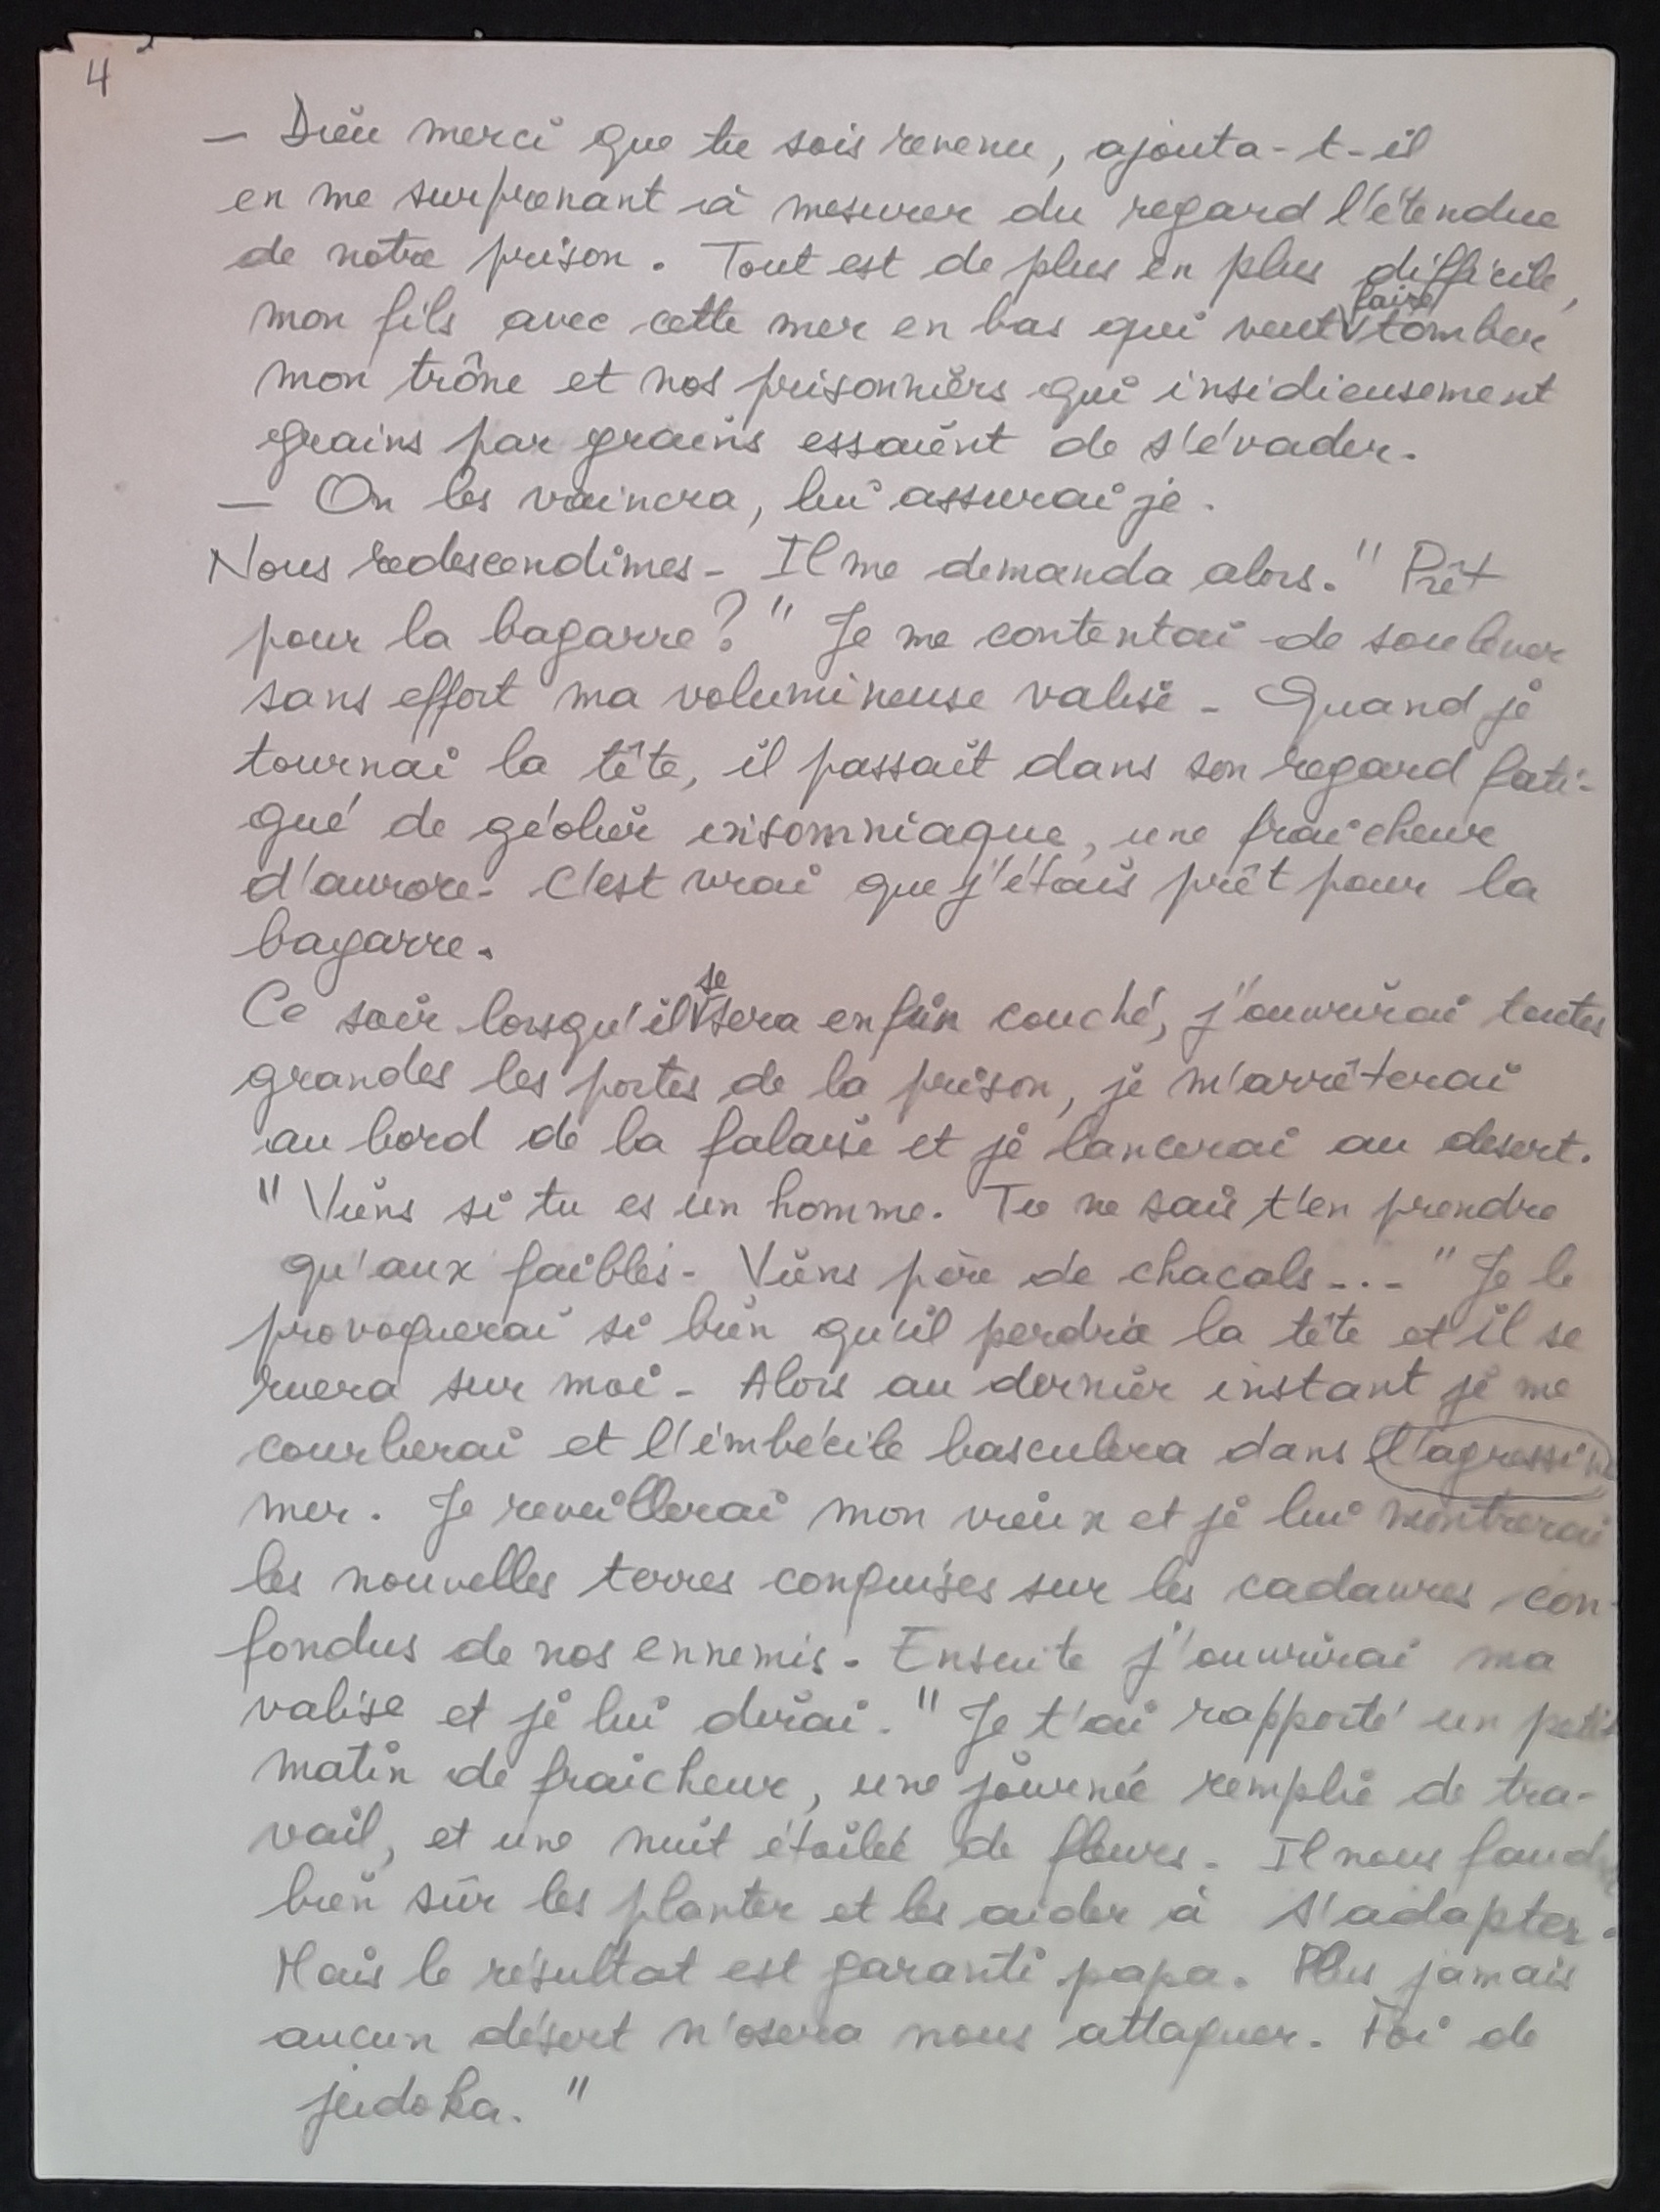 4
— Dieu merci que tu sois revenu, ajouta-t-il
en me surprenant à mesurer du regard l'étendue
de notre prison. Tout est de plus en plus difficile,
mon fils avec cette mer en bas qui veut faire tomber
mon trône et nos prisonniers qui insidieusement
grains par grains essaient de s'évader.
— On les vaincra, lui assurai je.
Nous redescendîmes - Il me demanda alors. " Prêt
pour la bagarre ? " Je me contentai de soulever
sans effort ma volumineuse valise - Quand je
tournai la tête, il passait dans son regard fati-
gué de géolier insomniaque, une fraicheur
d'aurore - C'est vrai que j'étais prêt pour la
bagarre.
Ce soir lorsqu'il se sera enfin couché, j'ouvrirai toutes
grandes les portes de la prison, je m'arrêterai
au bord de la falaise et je lancerai au desert.
" Viens si tu es un homme. Tu ne sais t'en prendre
qu'aux faibles - Viens père de chacals -.- " Je le
provoquerai si bien qu'il perdra la tête et il se
ruera sur moi - Alors au dernier instant je me
courberai et l'imbécile basculera dans l'agressive
mer. Je reveillerai mon vieux et je lui montrerai
les nouvelles terres conquises sur les cadavres con-
fondus de nos ennemis - Ensuite j'ouvrirai ma
valise et je lui dirai. " Je t'ai rapporté un petit
matin de fraicheur, une journée remplie de tra-
vail, et une nuit étoilée de fleurs - Il nous faudra
bien sûr les planter et les aider à s'adapter.
Mais le résultat est garanti papa. Plus jamais
aucun désert n'osera nous attaquer. Foi de
judoka. "